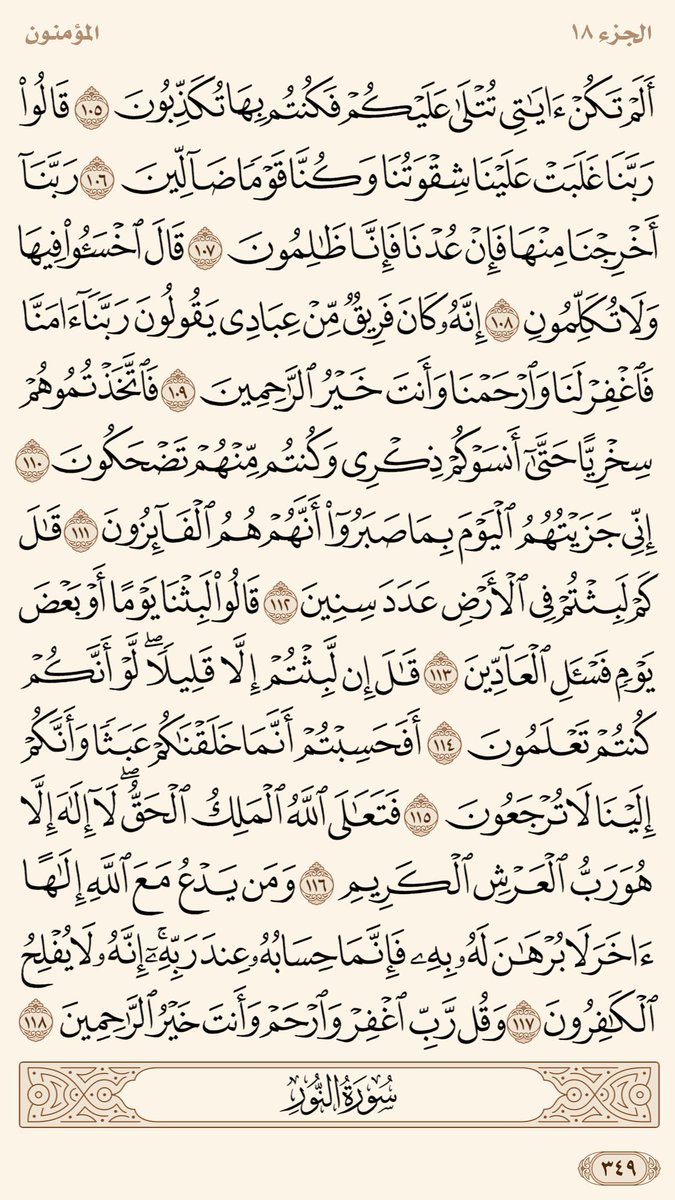 الجزء ١٨ المؤمنون
أَلَمْ تَكُنْ ءَايَٰتِى تُتْلَىٰ عَلَيْكُمْ فَكُنتُم بِهَا تُكَذِّبُونَ ١٠٥ قَالُوا۟
رَبَّنَا غَلَبَتْ عَلَيْنَا شِقْوَتُنَا وَكُنَّا قَوْمًا ضَآلِّينَ ١٠٦ رَبَّنَآ
أَخْرِجْنَا مِنْهَا فَإِنْ عُدْنَا فَإِنَّا ظَٰلِمُونَ ١٠٧ قَالَ ٱخْسَـُٔوا۟ فِيهَا
وَلَا تُكَلِّمُونِ ١٠٨ إِنَّهُۥ كَانَ فَرِيقٌ مِّنْ عِبَادِى يَقُولُونَ رَبَّنَآ ءَامَنَّا
فَٱغْفِرْ لَنَا وَٱرْحَمْنَا وَأَنتَ خَيْرُ ٱلرَّٰحِمِينَ ١٠٩ فَٱتَّخَذْتُمُوهُمْ
سِخْرِيًّا حَتَّىٰٓ أَنسَوْكُمْ ذِكْرِى وَكُنتُم مِّنْهُمْ تَضْحَكُونَ ١١٠
إِنِّى جَزَيْتُهُمُ ٱلْيَوْمَ بِمَا صَبَرُوٓا۟ أَنَّهُمْ هُمُ ٱلْفَآئِزُونَ ١١١ قَٰلَ
كَمْ لَبِثْتُمْ فِى ٱلْأَرْضِ عَدَدَ سِنِينَ ١١٢ قَالُوا۟ لَبِثْنَا يَوْمًا أَوْ بَعْضَ
يَوْمٍ فَسْـَٔلِ ٱلْعَآدِّينَ ١١٣ قَٰلَ إِن لَّبِثْتُمْ إِلَّا قَلِيلًا ۖ لَّوْ أَنَّكُمْ
كُنتُمْ تَعْلَمُونَ ١١٤ أَفَحَسِبْتُمْ أَنَّمَا خَلَقْنَٰكُمْ عَبَثًا وَأَنَّكُمْ
إِلَيْنَا لَا تُرْجَعُونَ ١١٥ فَتَعَٰلَى ٱللَّهُ ٱلْمَلِكُ ٱلْحَقُّ ۖ لَآ إِلَٰهَ إِلَّا
هُوَ رَبُّ ٱلْعَرْشِ ٱلْكَرِيمِ ١١٦ وَمَن يَدْعُ مَعَ ٱللَّهِ إِلَٰهًا
ءَاخَرَ لَا بُرْهَٰنَ لَهُۥ بِهِۦ فَإِنَّمَا حِسَابُهُۥ عِندَ رَبِّهِۦٓ ۚ إِنَّهُۥ لَا يُفْلِحُ
ٱلْكَٰفِرُونَ ١١٧ وَقُل رَّبِّ ٱغْفِرْ وَٱرْحَمْ وَأَنتَ خَيْرُ ٱلرَّٰحِمِينَ ١١٨
سُورَةُ النُّورِ
٣٤٩